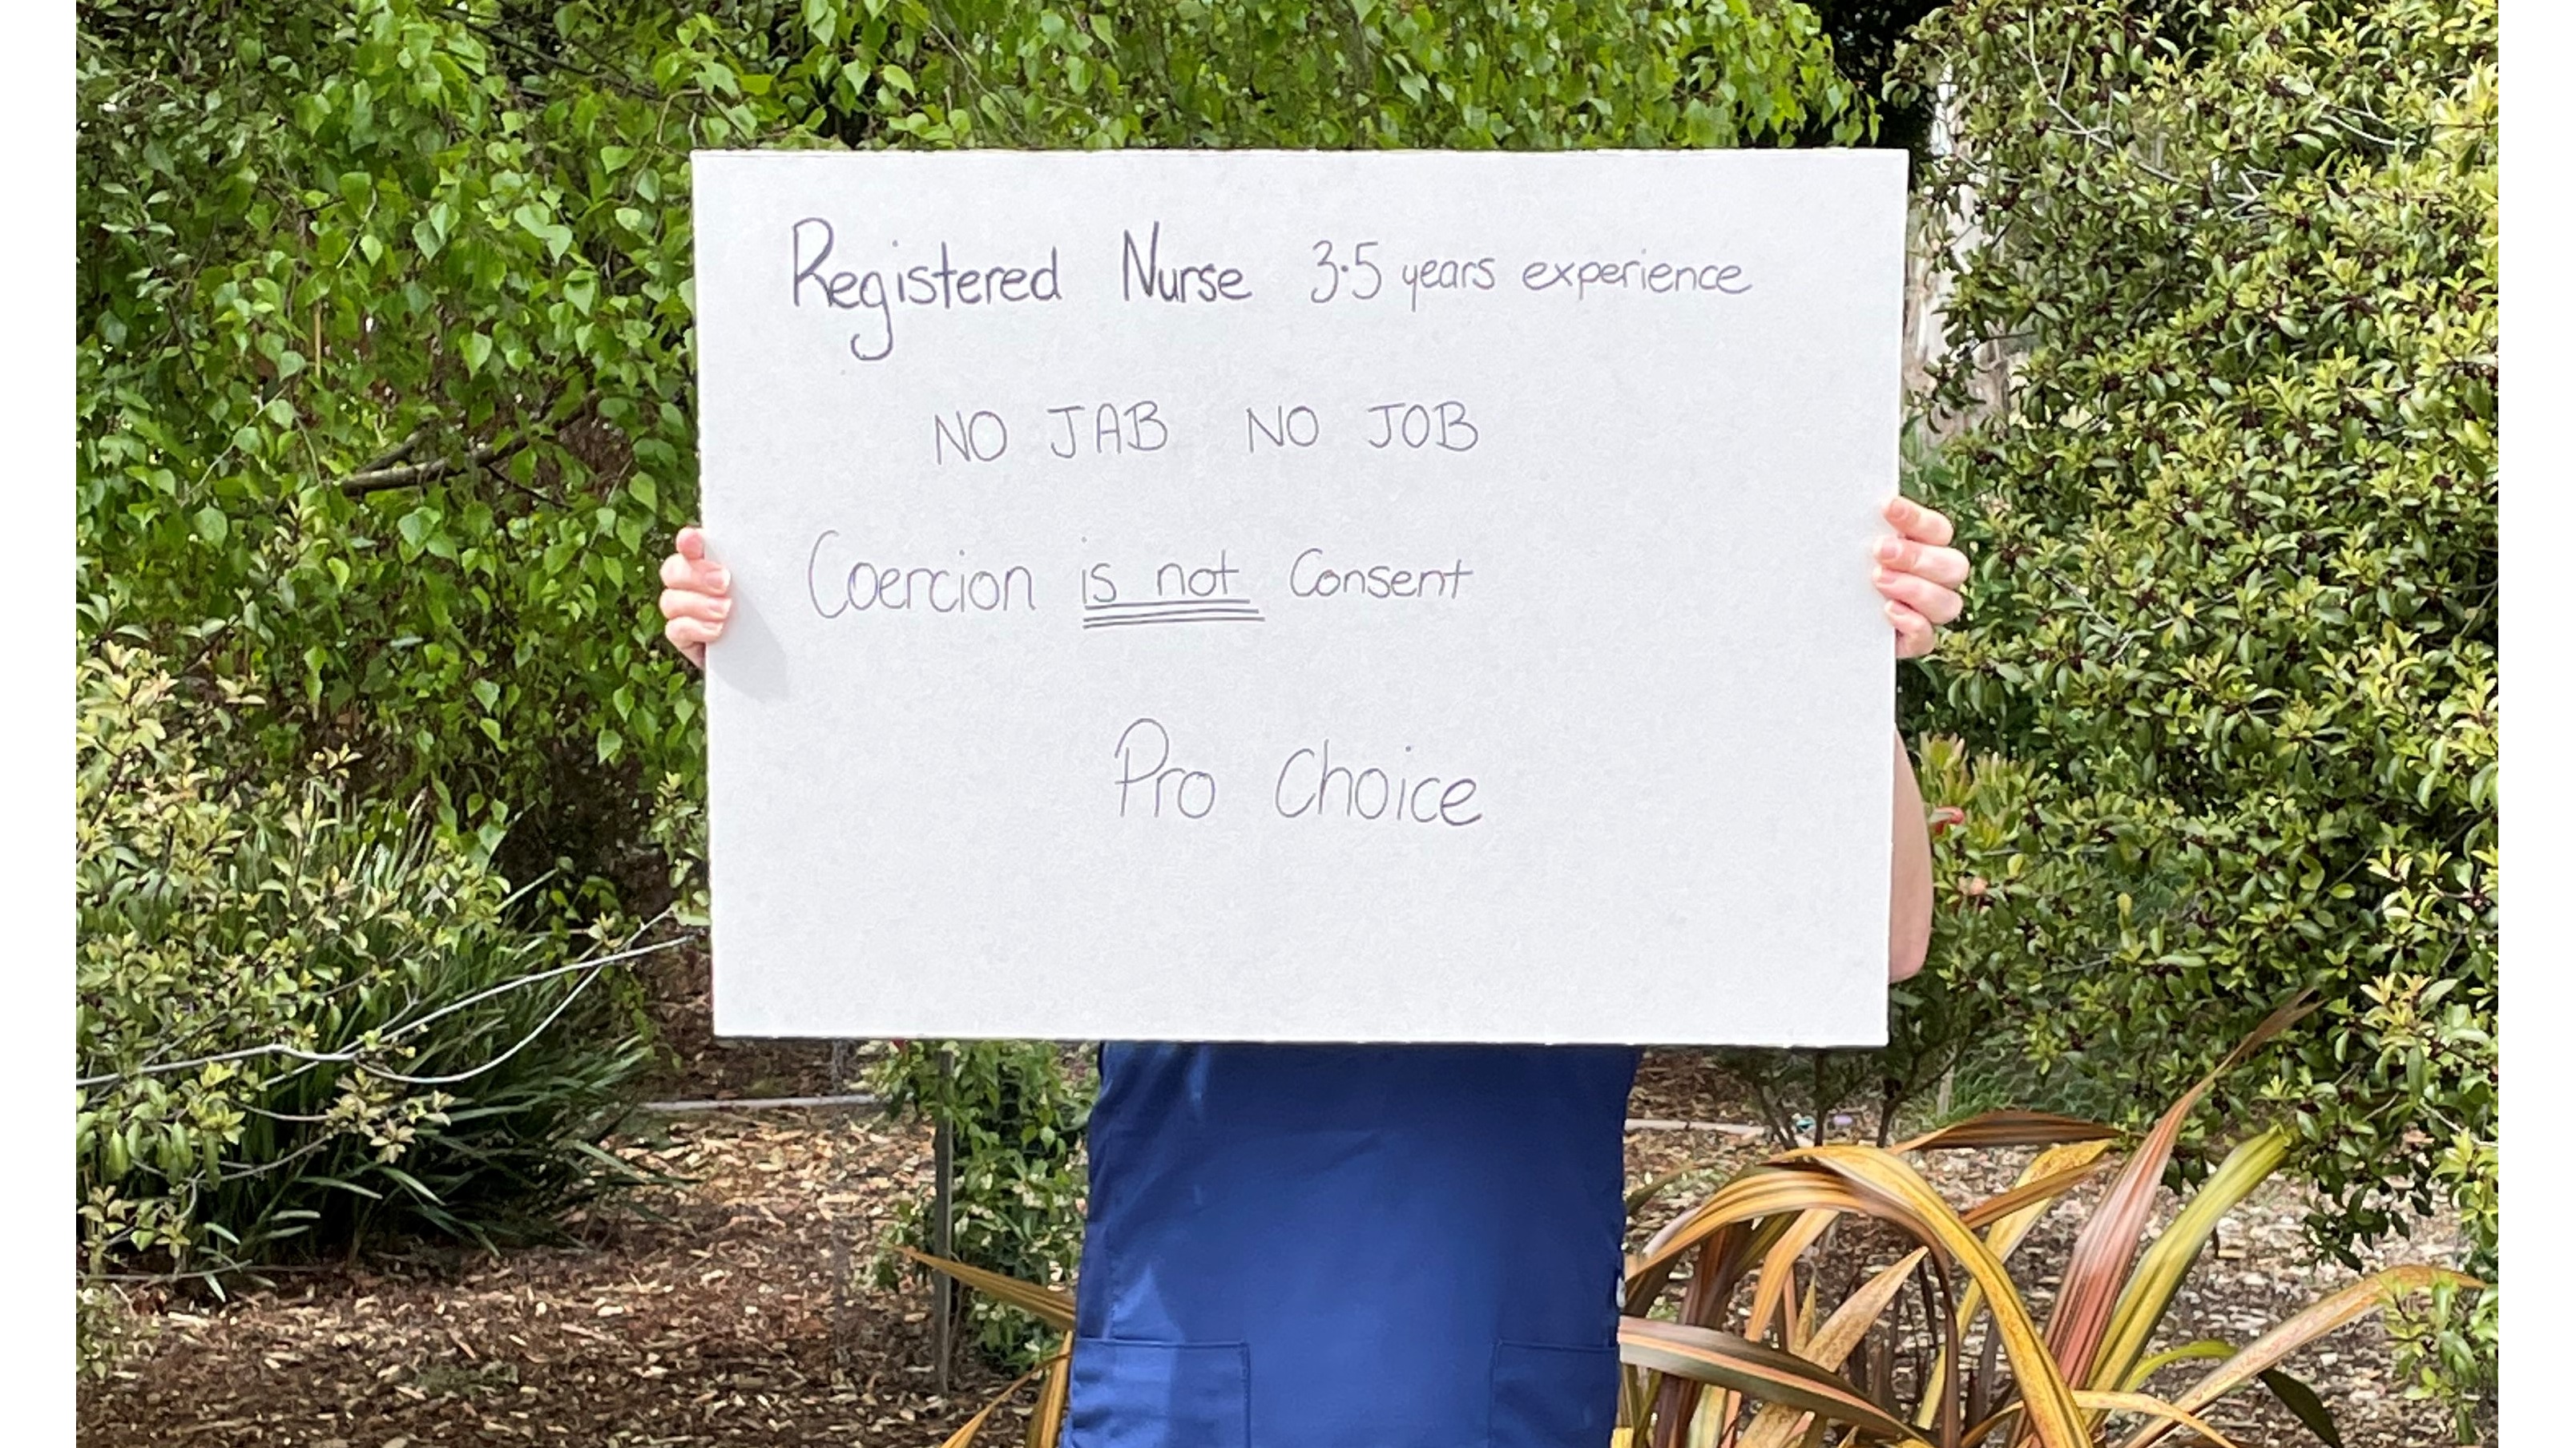 Registered Nurse 3.5 years experience
NO JAB NO JOB
Coercion is not Consent
Pro Choice